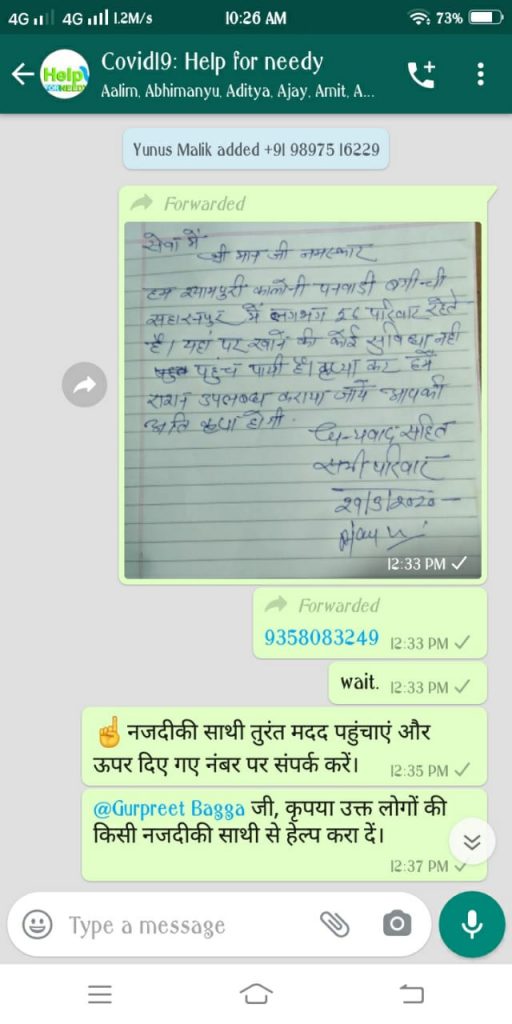 4G 4G 1.2M/s 10:26 AM 73%
Help
FOR NEEDY
Covid19: Help for needy
Aalim, Abhimanyu, Aditya, Ajay, Amit, A...
Yunus Malik added +91 98975 16229
Forwarded
सेवा में
श्री मान जी नमस्कार
हम श्यामपुरी कालोनी पनवाडी बगीची
सहारनपुर में लगभग 26 परिवार रहते
है। यहां पर खाने की कोई सुविधा नही
पहुंच पायी है। कृप्या कर हमें
राशन उपलब्ध कराया जाये आपकी
अति कृपा होगी।
धन्यवाद सहित
सभी परिवार
29/3/2020
Ajay
12:33 PM
Forwarded
9358083249 12:33 PM
wait. 12:33 PM
☝ नजदीकी साथी तुरंत मदद पहुंचाएं और
ऊपर दिए गए नंबर पर संपर्क करें। 12:35 PM
@Gurpreet Bagga जी, कृपया उक्त लोगों की
किसी नजदीकी साथी से हेल्प करा दें।
12:37 PM
Type a message